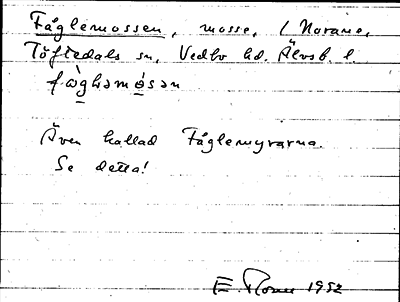 Fåglemossen, mosse, (Norane,
Töftedals sn, Vedbo hd. Älvsb. l.
fòghəmósən
Även kallad Fåglemyrarna.
Se detta!
E. 1952